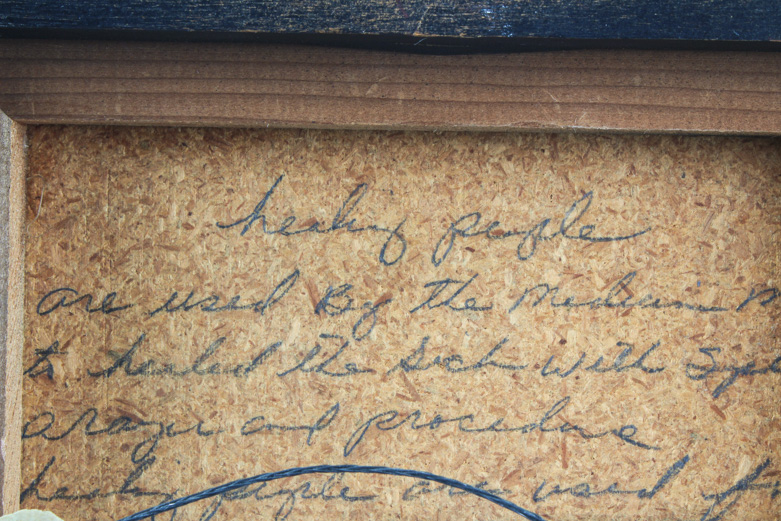 healing people
are used By the Medicine M
to healed the Sick with Sym
and procedure
healing people are used f